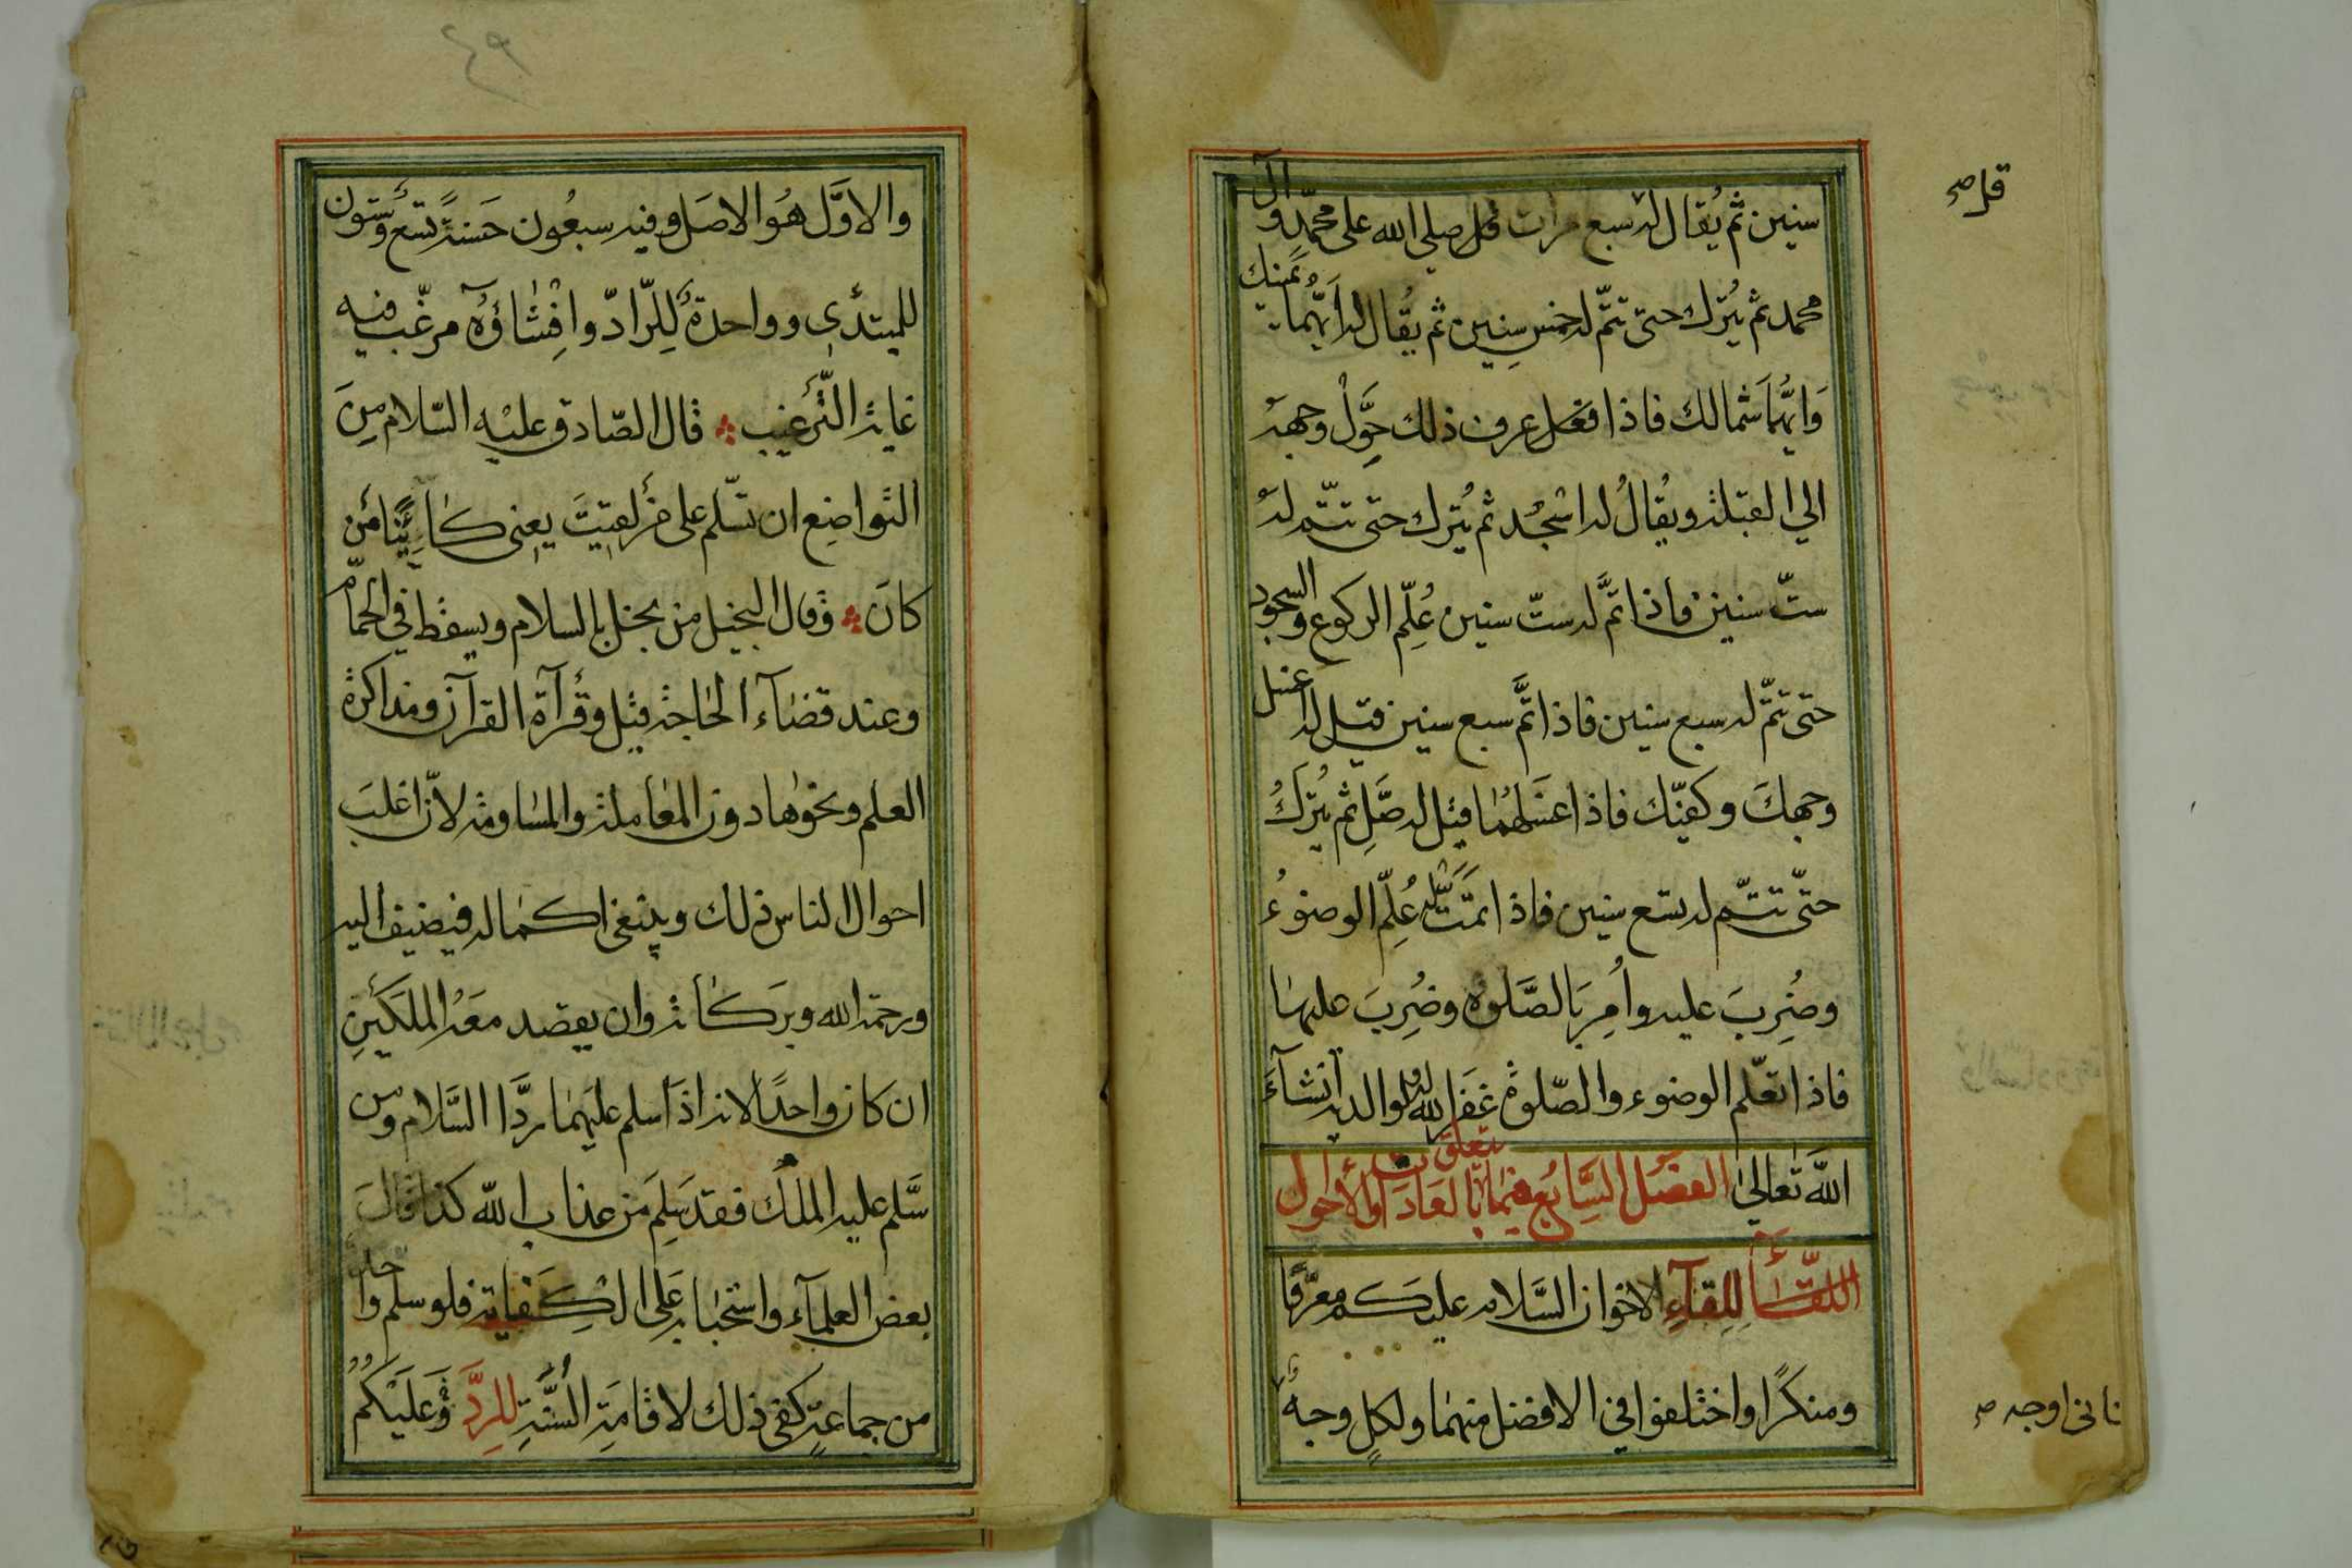 سنين ثم يُقال له سبع مرات قل صلي الله على محمّدٍ وآل
محمد ثم يُترك حتى تتمّ له خمس سِنين ثم يقال له أيّهُما يمينك
وَايّهُما شمالك فاذا فعل عرف ذلك حَوِّلْ وجهه
الي القبلة ويُقالُ له اسْجُد ثم يُترك حتى تتم له
ستّ سنين فاذا تمَّ له ستّ سنين عُلِّم الركوع والسجود
حتى تتمّ له سبع سنين فاذا تمَّ سبع سنين قيل له اغسل
وجهكَ وكفيّك فاذا غسَلَهُما قيل له صَلِّ ثم يُترَكُ
حتّى تتم له تسع سنين فاذا تمَّت له عُلِّم الوضوءُ
وضُرِبَ عليه واُمِر بَالصَّلوٰة وضُرِبَ عليها
فاذا تعلّم الوضوء والصّلوة غفَر الله له ولوالديه انشآءَ
اللهَ تعالىٰ الفصل السّابع فيما يتعلق بالعادات والأحوال
اللقاء لِلِقآءِ الاخوان السَّلام عليكم معرّفا
ومنكرًا واختلفوا في الافضل منهما ولكلٍ وجهٌ
قل صح
ثاني اوجه صح
٤٩
والاوّل هُو الاصل وفيه سبعُون حَسنةً تسع وستون
للمبتدئ وواحدة لِلرّادّ وافِشٰاؤُهٓ مرغّب فيه
غاية التّرغيب قال الصّادق عليْه السّلام مِنَ
التواضِع ان تسّلم على من لقيتَ يعني كٰائِنًا من
كانَ وقال البخيل من بخل بالسلام ويسقط في الحمّام
وعند قضٰآء الحٰاجة قيل وقرآة القرآن ومذاكرة
العلم ونحوهٰا دون المعٰاملة والمسٰاومة لانّ اغلبَ
احوال الناس ذلك وينبغي اكمٰاله فيضيف اليه
ورحمة الله وبرَكٰاته وان يقصد معَهُ الملَكَيْنِ
ان كان واحدًا لانه اذا سلم عليهمٰا ردّا السَّلام ومن
سَّلم عليه الملك فقد سَلِمَ من عذاب الله كذا قالَ
بعض العلمآء واستحبٰابه عَلى الكِفَايةِ فلو سلم واحد
من جماعةٍ كفى ذلك لاقامَةِ السُّنّةِ للرِدَّ وَعَلَيْكُمُ